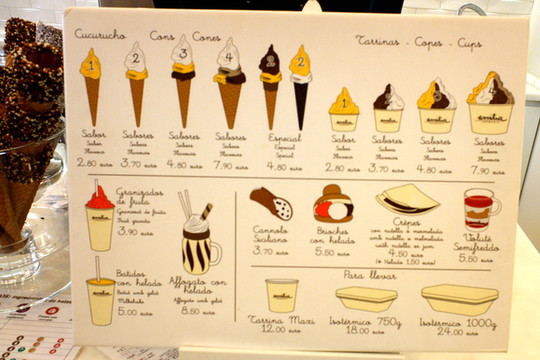 Cucurucho Cons Cones
Tarrinas - Copes - Cups
1
2
3
4
2
2
1
2
3
4
Sabor
Sabor
Flavour
2.80 euro
Sabores
Sabors
Flavours
3.70 euro
Sabores
Sabors
Flavours
4.80 euro
Sabores
Sabors
Flavours
7.90 euro
Especial
Especial
Special
4.80 euro
Sabor
Sabor
Flavour
2.80 euro
Sabores
Sabors
Flavours
3.70 euro
Sabores
Sabors
Flavours
4.80 euro
Sabores
Sabors
Flavours
7.90 euro
Granizados
de fruta
Granissat de fruita
Fruit granita
3.90 euro
Batidos
con helado
Batut amb gelat
Milkshake
5.00 euro
Affogato con
helado
Affogato amb gelat
8.50 euro
Cannolo
Siciliano
3.70 euro
Brioches
con helado
5.50 euro
Crêpes
con nutella o mermelada
amb nutella o melmelada
with nutella or jam
4.50 euro
(+ Helado 1,50 euro)
Voluté
Semifreddo
5.50 euro
Para llevar
Tarrina Maxi
12.00 euro
Isotérmico 750g
18.00 euro
Isotérmico 1000g
24.00 euro